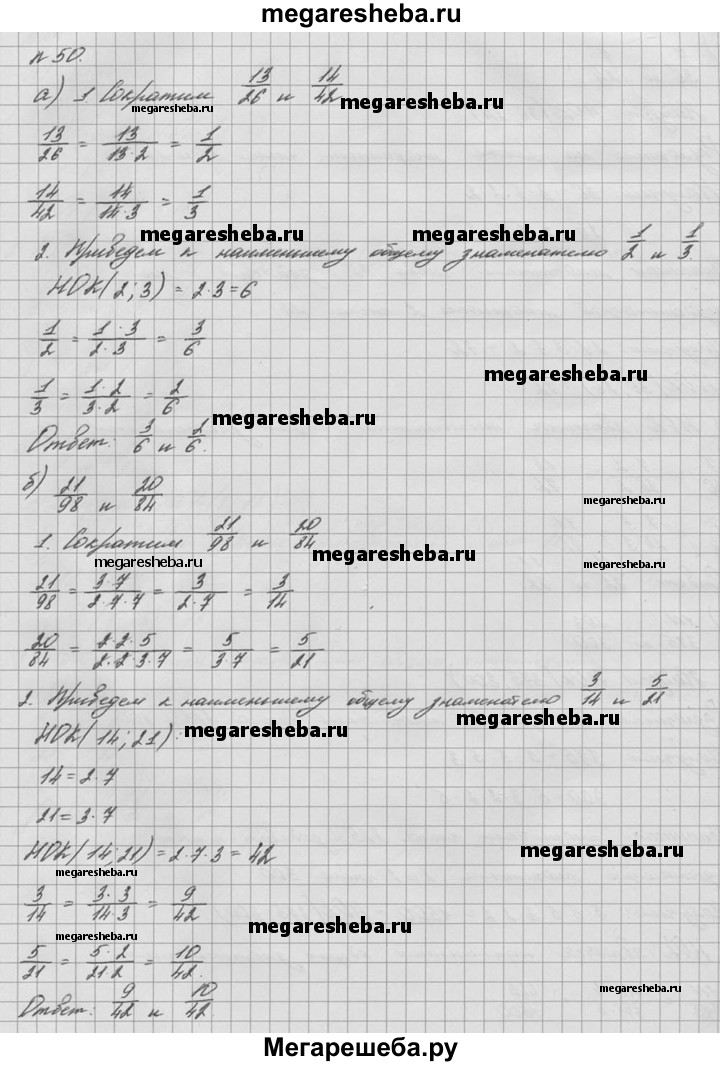 megaresheba.ru
n 50.
а) 1. Сократим 13/26 и 14/42
megaresheba.ru
megaresheba.ru
13/26 = 13/13·2 = 1/2
14/42 = 14/14·3 = 1/3
megaresheba.ru megaresheba.ru
2. Приведем к наименьшему общему знаменателю 1/2 и 1/3.
НОК(2; 3) = 2·3 = 6
1/2 = 1·3/2·3 = 3/6
megaresheba.ru
1/3 = 1·2/3·2 = 2/6
megaresheba.ru
Ответ: 3/6 и 2/6.
б) 21/98 и 20/84
megaresheba.ru
1. Сократим 21/98 и 20/84
megaresheba.ru megaresheba.ru megaresheba.ru
21/98 = 3·7/2·7·7 = 3/2·7 = 3/14
20/84 = 2·2·5/2·2·3·7 = 5/3·7 = 5/21
2. Приведем к наименьшему общему знаменателю 3/14 и 5/21
megaresheba.ru
НОК(14; 21):
megaresheba.ru
14 = 2·7
21 = 3·7
НОК(14; 21) = 2·7·3 = 42
megaresheba.ru
megaresheba.ru
3/14 = 3·3/14·3 = 9/42
megaresheba.ru
megaresheba.ru
5/21 = 5·2/21·2 = 10/42.
megaresheba.ru
Ответ: 9/42 и 10/42.
Мегарешеба.ру